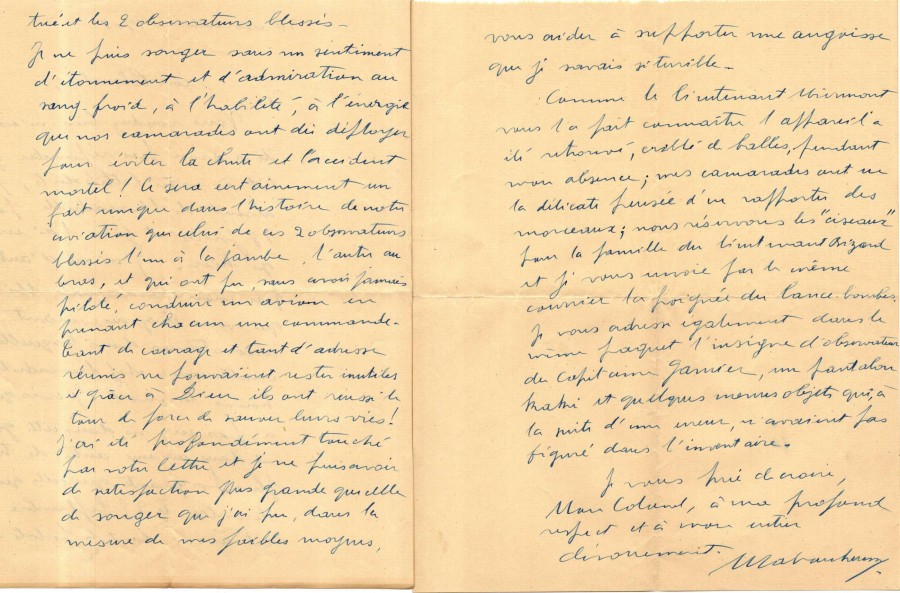 tué et les 2 observateurs blessés -
Je ne puis songer sans un sentiment
d'étonnement et d'admiration au
sang-froid, à l'habileté, à l'énergie
que nos camarades ont dû déployer
pour éviter la chute et l'accident
mortel ! Ce sera certainement un
fait unique dans l'histoire de notre
aviation que celui de ces 2 observateurs
blessés l'un à la jambe, l'autre au
bras, et qui ont pu, sans avoir jamais
piloté, conduire un avion en
prenant chacun une commande -
Tant de courage et tant d'adresse
réunis ne pouvaient rester inutiles
et grâce à Dieu ils ont réussi le
tour de force de sauver leurs vies !
J'ai été profondément touché
par votre lettre et je ne puis avoir
de satisfaction plus grande que celle
de songer que j'ai pu, dans la
mesure de mes faibles moyens,
vous aider à supporter une angoisse
que je savais si terrible -
Comme le lieutenant
vous l'a fait connaître l'appareil a
été retrouvé, criblé de balles, pendant
mon absence ; mes camarades ont eu
la délicate pensée d'en rapporter des
morceaux ; nous réservons les "ciseaux"
pour la famille du lieutenant Rizard
et je vous envoie par le même
courrier la poignée du lance-bombes.
Je vous adresse également dans le
même paquet l'insigne d'observateur
du Capitaine Garnier, un pantalon
kaki et quelques menus objets qui, à
la suite d'une erreur, n'avaient pas
figuré dans l'inventaire.
Je vous prie de croire,
Mon Colonel, à mon profond
respect et à mon entier
dévouement.